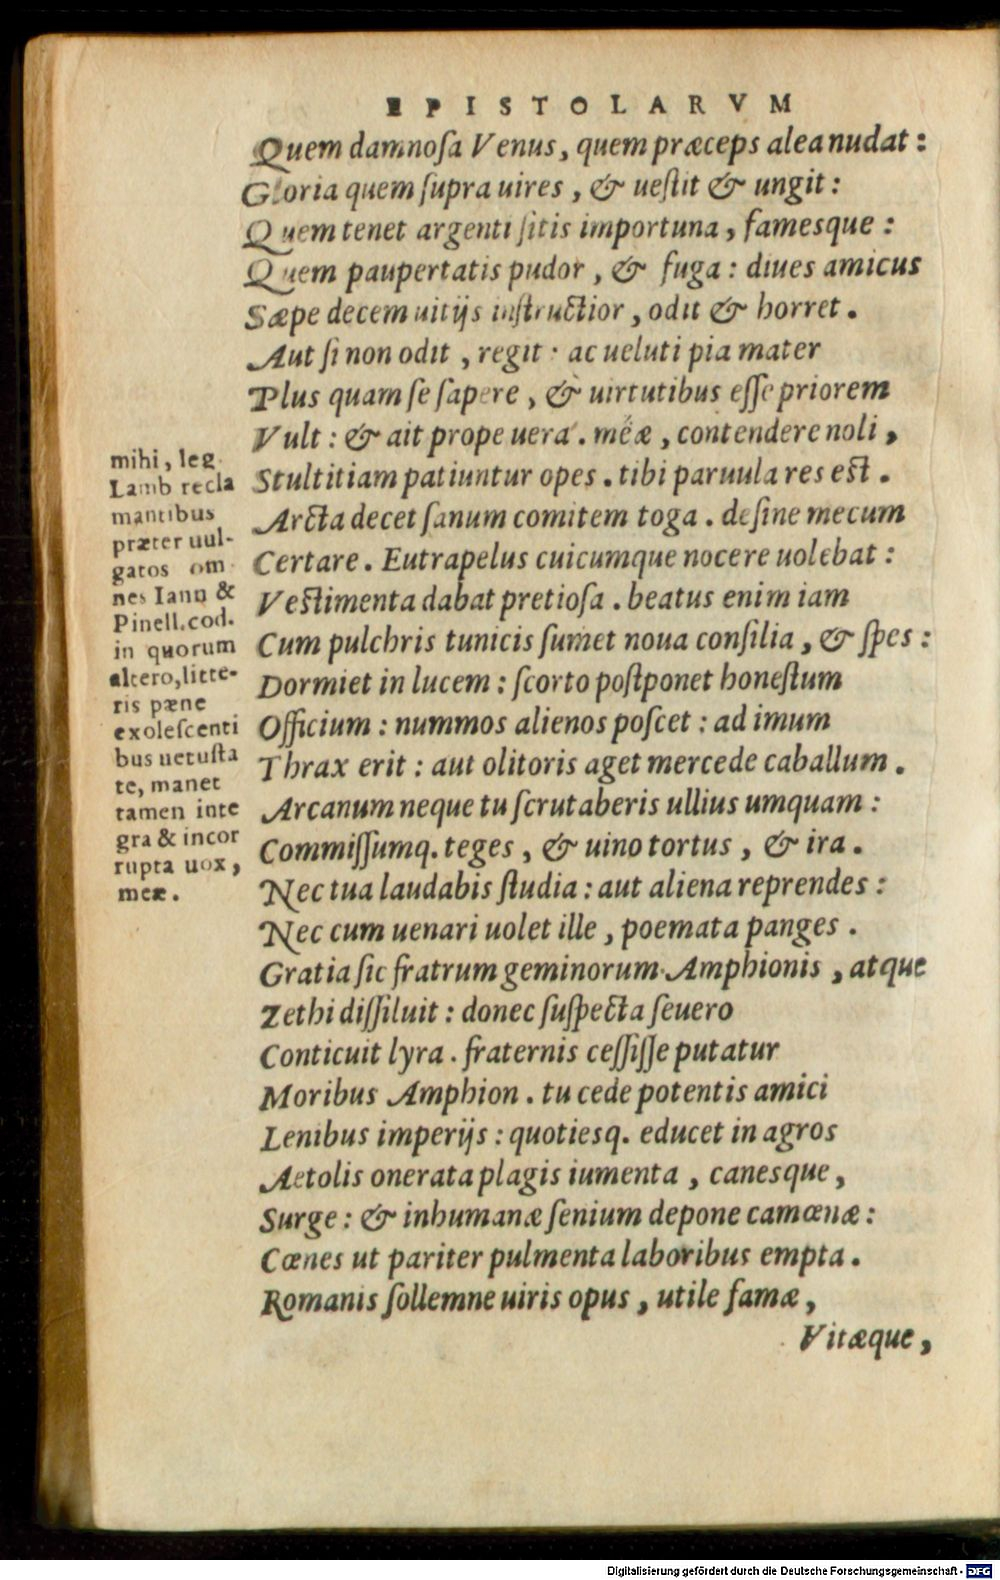 EPISTOLARVM
Quem damnoſa Venus, quem præceps alea nudat:
Gloria quem ſupra uires, & ueſtit & ungit:
Quem tenet argenti ſitis importuna, famesque:
Quem paupertatis pudor, & fuga: diues amicus
Sæpe decem uitijs inſtructior, odit & horret.
Aut ſi non odit, regit: ac ueluti pia mater
Plus quam ſe ſapere, & uirtutibus eſſe priorem
Vult: & ait prope uera. méæ, contendere noli,
Stultitiam patiuntur opes. tibi paruula res est.
Arcta decet ſanum comitem toga. deſine mecum
Certare. Eutrapelus cuicumque nocere uolebat:
Vestimenta dabat pretioſa. beatus enim iam
Cum pulchris tunicis ſumet noua conſilia, & ſpes:
Dormiet in lucem: ſcorto poſtponet honeſtum
Officium: nummos alienos poſcet: ad imum
Thrax erit: aut olitoris aget mercede caballum.
Arcanum neque tu ſcrutaberis ullius umquam:
Commiſſumq. teges, & uino tortus, & ira.
Nec tua laudabis ſtudia: aut aliena reprendes:
Nec cum uenari uolet ille, poemata panges.
Gratia ſic fratrum geminorum Amphionis, atque
Zethi diſſiluit: donec ſuſpecta ſeuero
Conticuit lyra. fraternis ceſſiſſe putatur
Moribus Amphion. tu cede potentis amici
Lenibus imperijs: quotiesq. educet in agros
Aetolis onerata plagis iumenta, canesque,
Surge: & inhumanæ ſenium depone camœnæ:
Cœnes ut pariter pulmenta laboribus empta.
Romanis ſollemne uiris opus, utile famæ,
Vitæque,
mihi, leg.
Lamb recla
mantibus
præter uul-
gatos om
nes Iann &
Pinell. cod.
in quorum
altero, litte-
ris pæne
exoleſcenti
bus uetuſta
te, manet
tamen inte
gra & incor
rupta uox,
meæ.
Digitalisierung gefördert durch die Deutsche Forschungsgemeinschaft - DFG